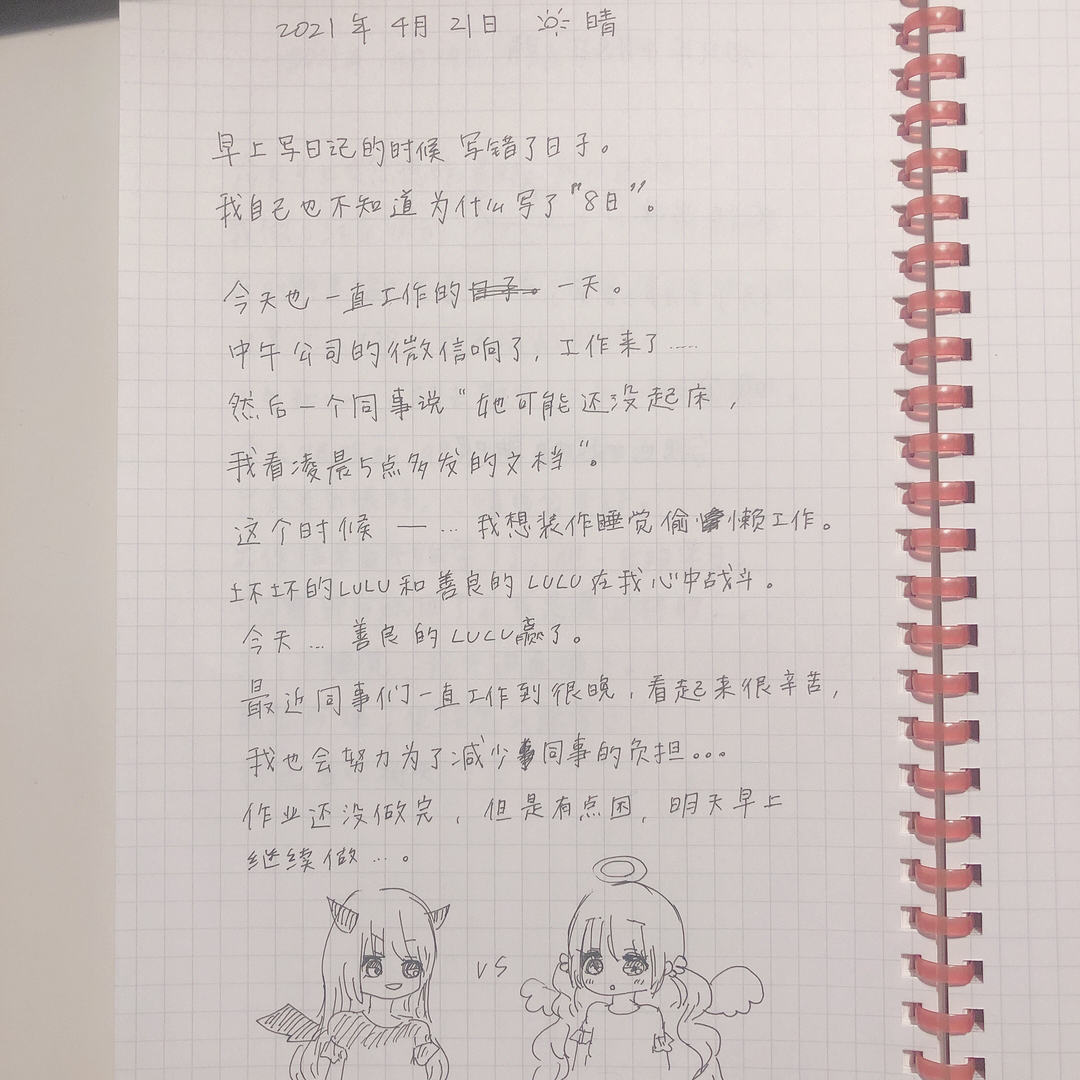 2021年4月21日 晴
早上写日记的时候 写错了日子。
我自己也不知道为什么写了"8日"。
今天也一直工作的日子。一天。
中午公司的微信响了,工作来了……
然后一个同事说"她可能还没起床,
我看凌晨5点多发的文档"。
这个时候 一… 我想装作睡觉偷懒工作。
坏坏的LULU和善良的LULU在我心中战斗。
今天… 善良的LULU赢了。
最近同事们一直工作到很晚,看起来很辛苦,
我也会努力为了减少同事的负担。。。
作业还没做完,但是有点困,明天早上
继续做…。
VS